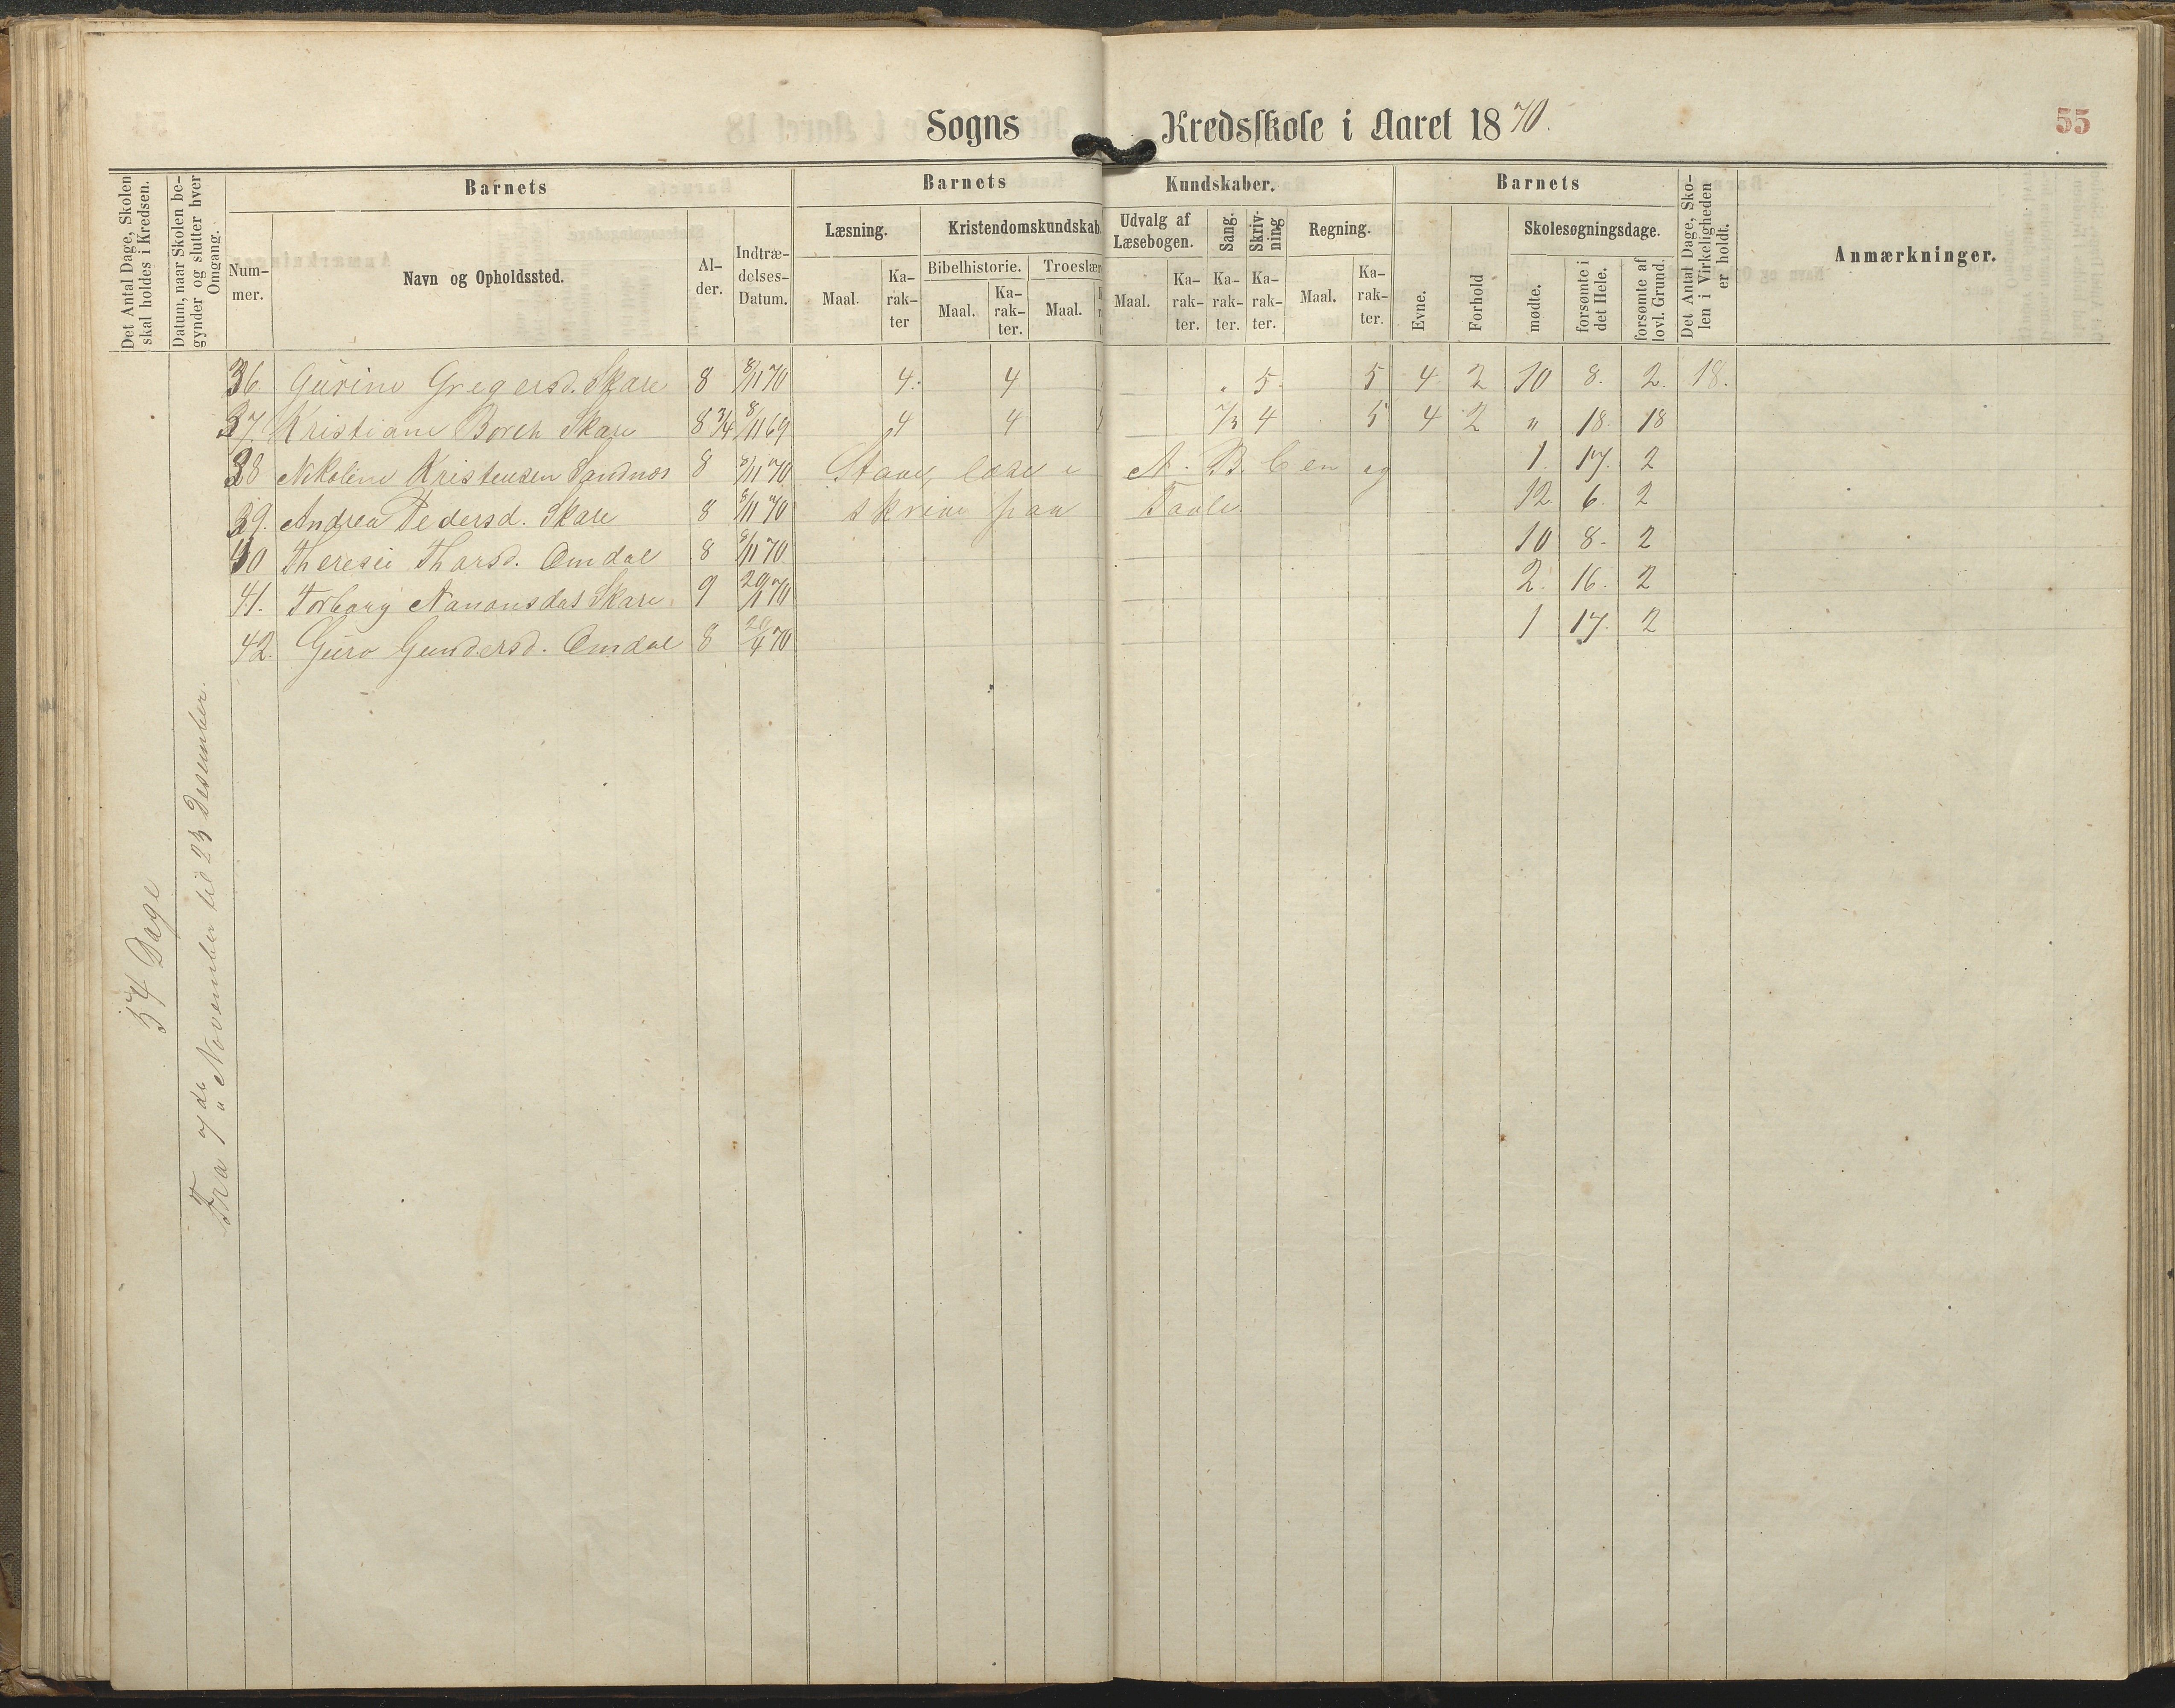 Sogns Kredsskole i Aaret 1870. 55
Det Antal Dage, Skolen skal holdes i Kredsen.
Datum, naar Skolen begynder og slutter hver Omgang.
Barnets
Barnets Kundskaber.
Barnets
Det Antal Dage, Skolen i Virkeligheden er holdt.
Anmærkninger.
Nummer.
Navn og Opholdssted.
Alder.
Indtrædelses-Datum.
Læsning. Kristendomskundskab. Udvalg af Læsebogen. Sang. Skrivning Regning.
Evne. Forhold Skolesøgningsdage.
Bibelhistorie. Troeslær
Maal. Karakter Maal. Karakter. Maal. Maal. Karakter. Karakter. Karakter. Maal. Karakter.
mødte. forsømte i det Hele. forsømte af lovl. Grund.
36. Gurine Gregersd. Skare 8 8/11 70 4. 4 5. 5 4 2 10 8. 2. 18.
37. Kristiane Borch Skare 8 3/4 8/11 69 4 4 4 5 4 2 " 18. 18
38 Nikoline Kristensen Sandnes 8 8/11 70 Stave, læse i A. B. C en og 1. 17. 2
39. Andrea Pedersd. Skare 8 8/11 70 skrive paa Tavle. 12. 6. 2
40 Theresie Tharsd. Omdal 8 8/11 70 10 8. 2
41. Torborg Skare 9 70 2. 16. 2
42. Guro Gundersd. Omdal 8 70 1 17. 2
54 Dage
Fra 7de November til 23 Desember.